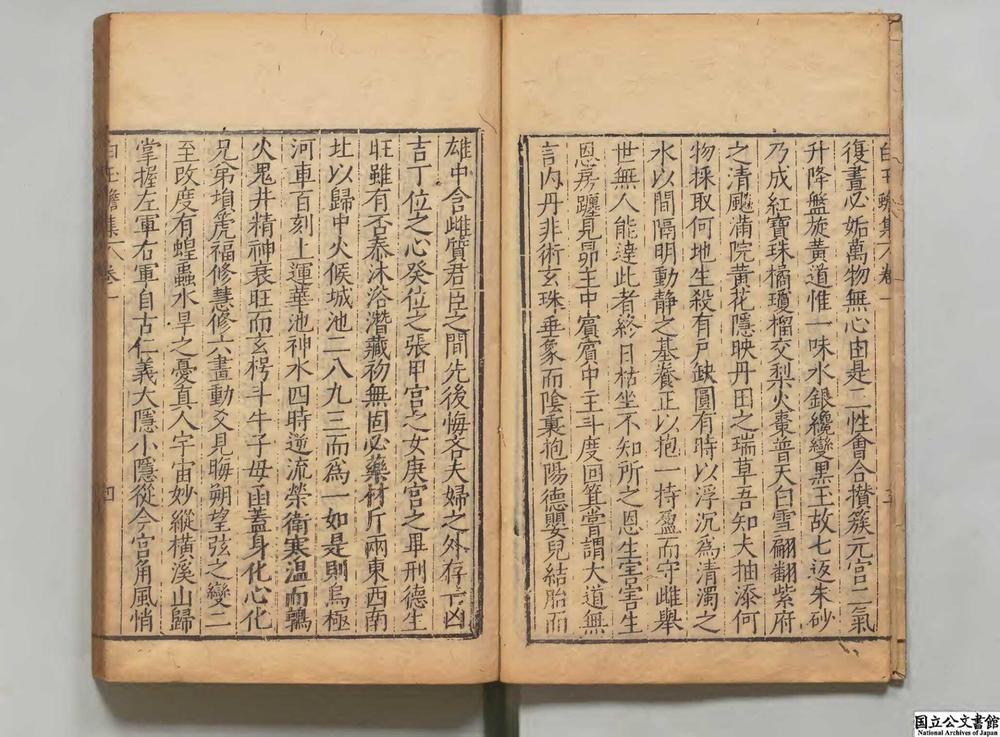 白玉蟾集 卷一
復晝必姤萬物無心由是二性會合攢簇元宮二氣
升降盤旋黃道惟一味水銀纔變黑玉故七返朱砂
乃成紅寶珠橘瓊榴交梨火棗普天白雪翩翻紫府
之清颸滿院黃花隱映丹田之瑞草吾知夫抽添何
物採取何地生殺有戶缺圓有時以浮沉爲清濁之
水以間隔明動靜之基養正以抱一持盈而守雌舉
世無人能達此者終日枯坐不知所之恩生害害生
恩房躔見昴主中賓賓中主斗度回箕嘗謂大道無
言內丹非術玄珠垂象而陰裏抱陽德嬰兒結胎而
雄中含雌質君臣之間先後悔吝夫婦之外存亡凶
吉丁位之心癸位之張甲宮之女庚宮之畢刑德生
旺雖有否泰沐浴潛藏初無固必藥材斤兩東西南
北以歸中火候城池二八九三而爲一如是則烏極
河車百刻上運華池神水四時逆流榮衛寒温而鶉
火鬼井精神衰旺而玄枵斗牛子母函蓋身化心化
兄弟塤箎福修慧修六畫動爻見晦朔望弦之變二
至改度有蝗蟲水旱之憂真人宇宙妙縱橫溪山歸
掌握左軍右軍自古仁義大隱小隱從今宮角風悄
白玉蟾集 卷一
四
国立公文書館
National Archives of Japan